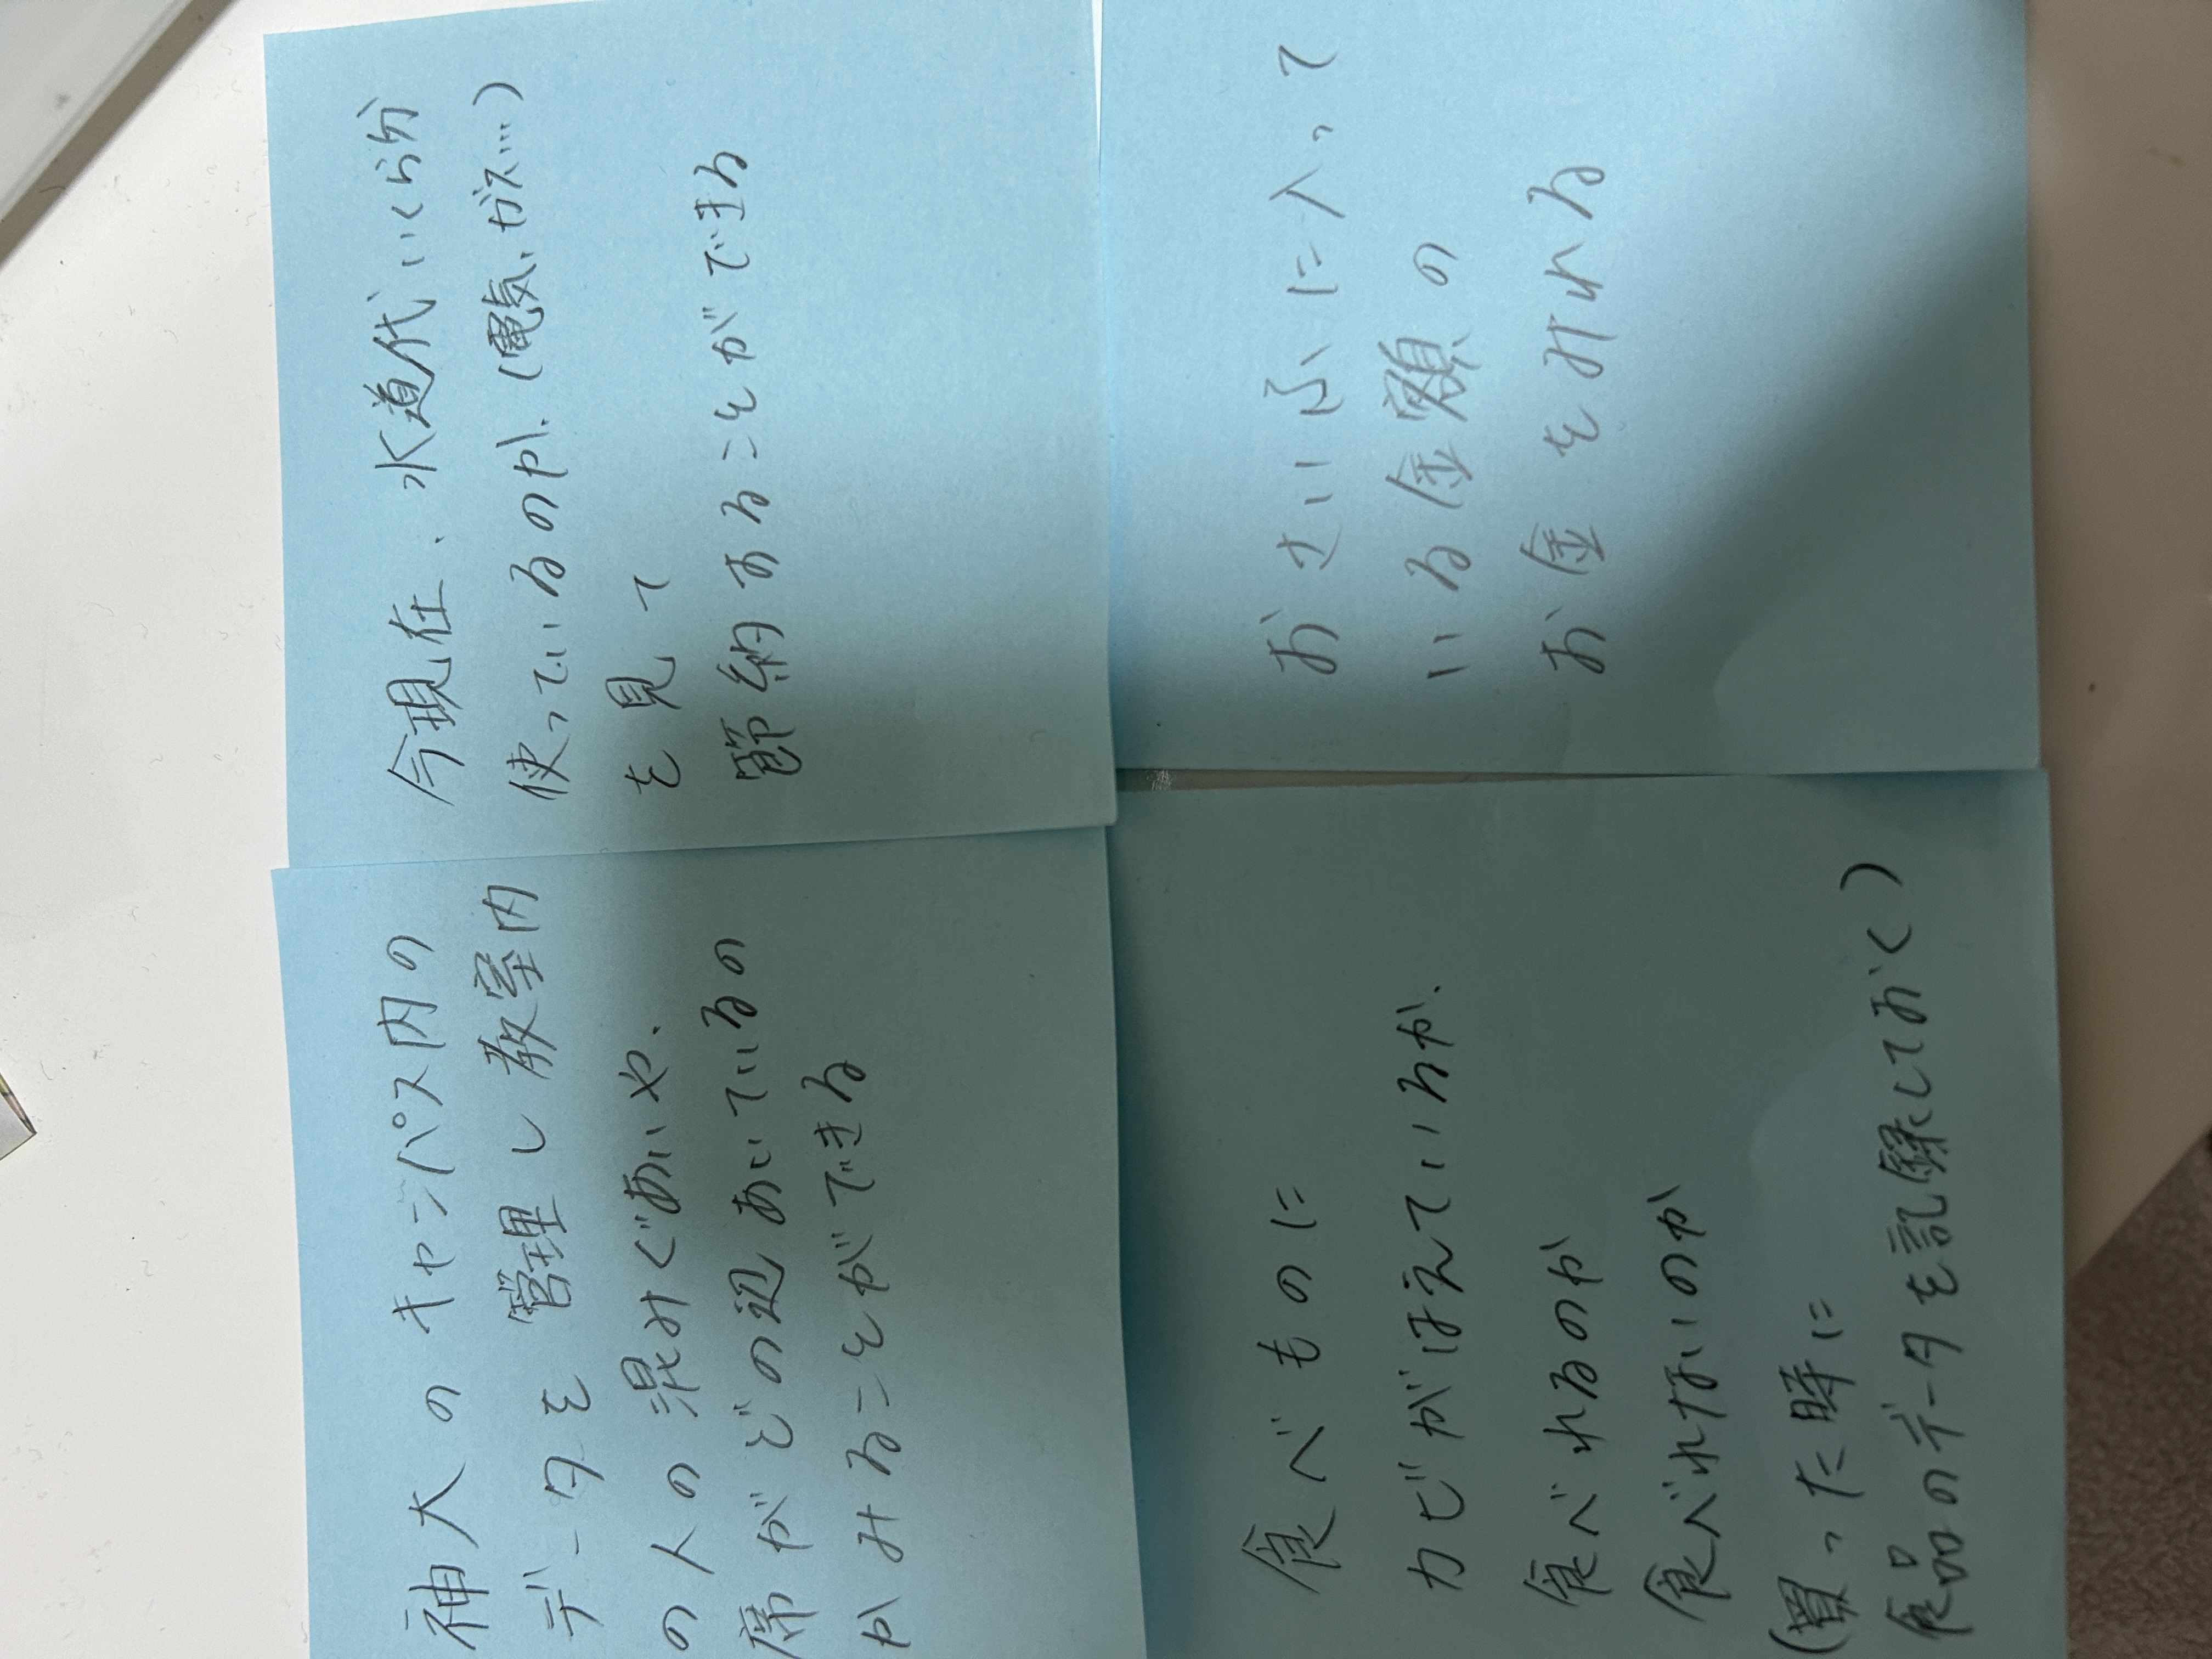 神大のキャンパス内の
データを管理し教室内
の人の混みぐあいや、
席がどの辺あいているの
かみることができる
今現在、水道代いくら分
使っているのか、(電気、ガス…)
を見て
節約することができる
食べものに
カビがはえているか、
食べれるのか
食べれないのか
(買った時に
食品のデータを記録しておく)
おさいふに入って
いる金額の
お金をみれる